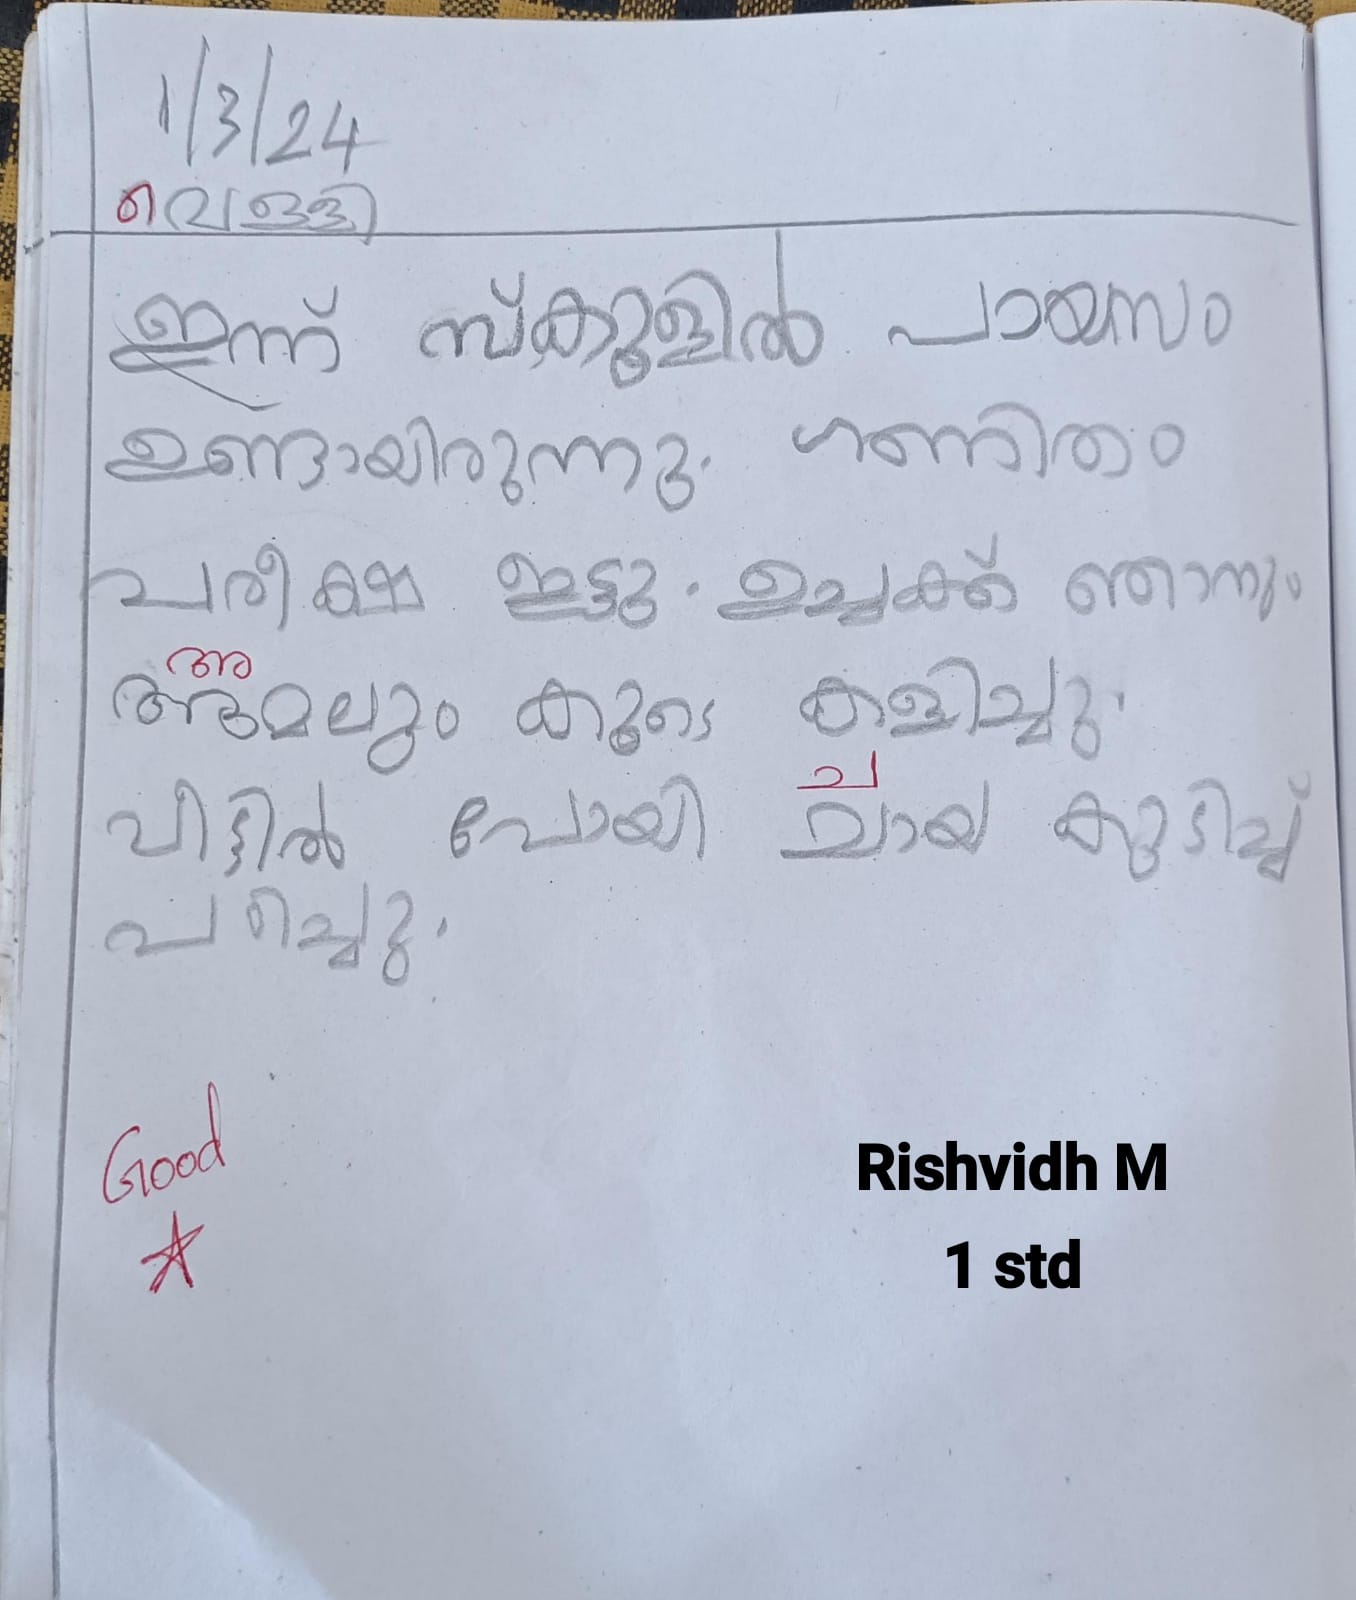 1/3/24
വെള്ളി
ഇന്ന് സ്കൂളിൽ പായസം
ഉണ്ടായിരുന്നു. ഗണിതം
പരീക്ഷ ഇട്ടു. ഉച്ചക്ക് ഞാനും
അ
അമലും കൂടെ കളിച്ചു.
ച
വീട്ടിൽ പോയി ചായ കുടിച്ച്
പഠിച്ചു.
Good
Rishvidh M
1 std